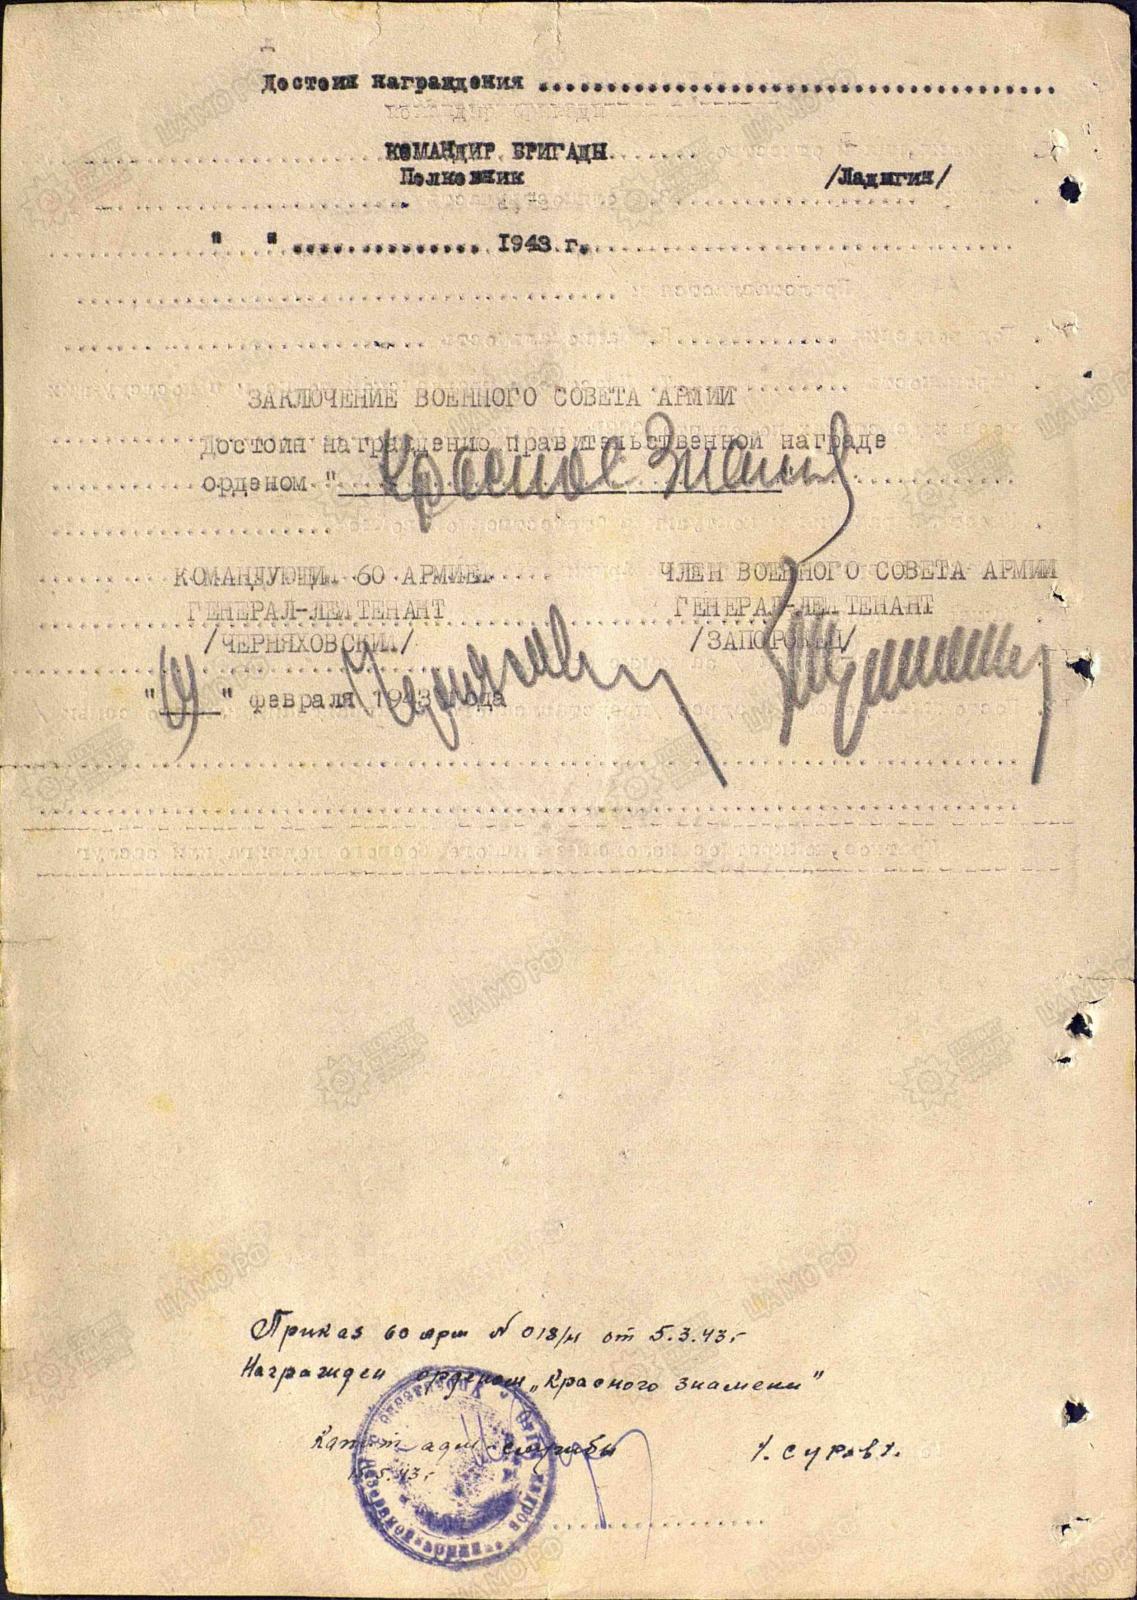 Достоин награждения ........................................
КОМАНДИР БРИГАДЫ
Полковник /Ладыгин/
" " .............. 1943 г.
ЗАКЛЮЧЕНИЕ ВОЕННОГО СОВЕТА АРМИИ
Достоин награждению правительственной награде
орденом "Красное Знамя
КОМАНДУЮЩИЙ 60 АРМИЕЙ ЧЛЕН ВОЕННОГО СОВЕТА АРМИИ
ГЕНЕРАЛ-ЛЕЙТЕНАНТ ГЕНЕРАЛ-ЛЕЙТЕНАНТ
/ЧЕРНЯХОВСКИЙ/ /ЗАПОРОЖЕЦ/
" " февраля 1943 года
Приказ 60 арм N 018/н от 5.3.43 г
Награжден орденом "Красного Знамени"
адм. службы /.Суров/.
5.43 г